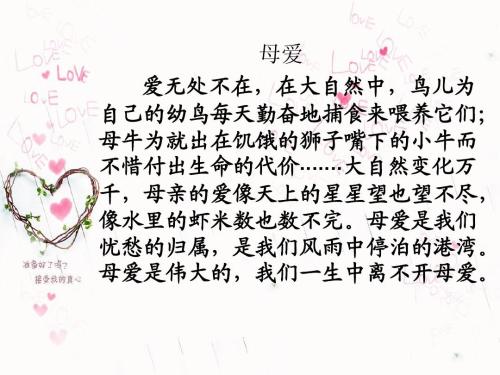 母爱
爱无处不在，在大自然中，鸟儿为
自己的幼鸟每天勤奋地捕食来喂养它们；
母牛为就出在饥饿的狮子嘴下的小牛而
不惜付出生命的代价.......大自然变化万
千，母亲的爱像天上的星星望也望不尽，
像水里的虾米数也数不完。母爱是我们
忧愁的归属，是我们风雨中停泊的港湾。
母爱是伟大的，我们一生中离不开母爱。
准备好了吗？
接受我的真心
LOVE
LOVE
LOVE
LOVE
LOVE